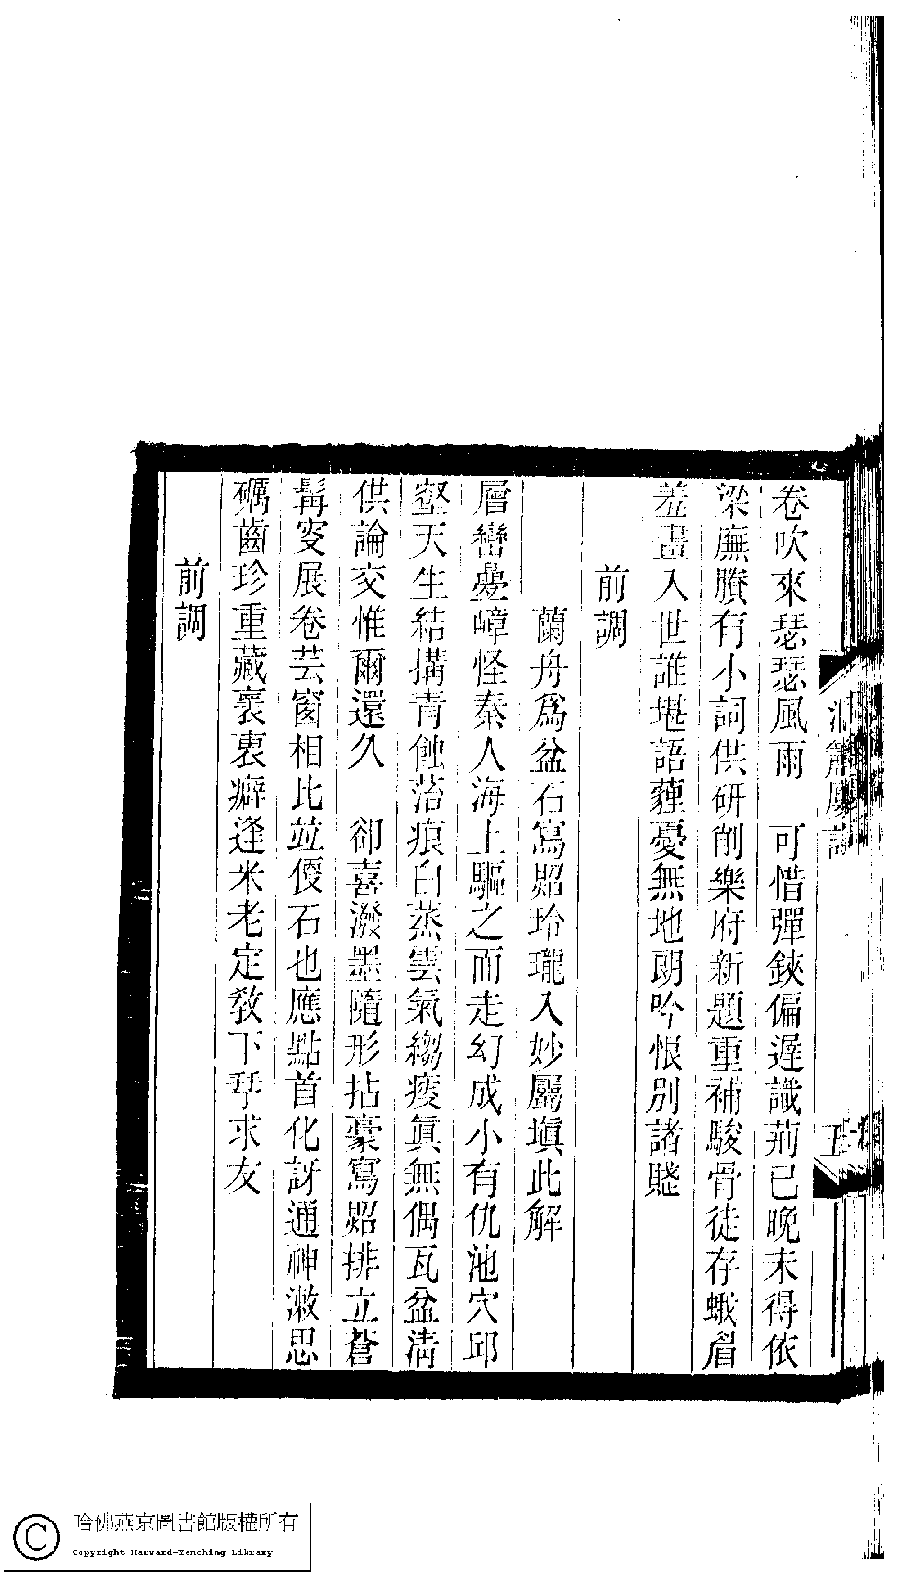 卷吹來瑟瑟風雨　可惜彈鋏偏遲識荊已晚未得依
梁廡賸有小詞供研削樂府新題重補駿骨徒存蛾眉
羞畫入世誰堪語薶憂無地朗吟恨別諸賤
前調
蘭舟爲盆石寫照玲瓏入妙屬塡此解
層巒疊嶂怪秦人海上驅之而走幻成小有仇池穴邱
壑天生結搆青蝕苔痕白蒸雲氣縐瘦眞無偶瓦盆淸
供論交惟爾還久　卻喜潑墨隨形拈豪寫照排立蒼
髯叟展卷芸窗相比竝優石也應點首化訝通神漱思
礪齒珍重藏襄裏癖逢米老定敎下乎求友
前調
五
哈佛燕京圖書館版權所有
Copyright Harvard-Yenching Library